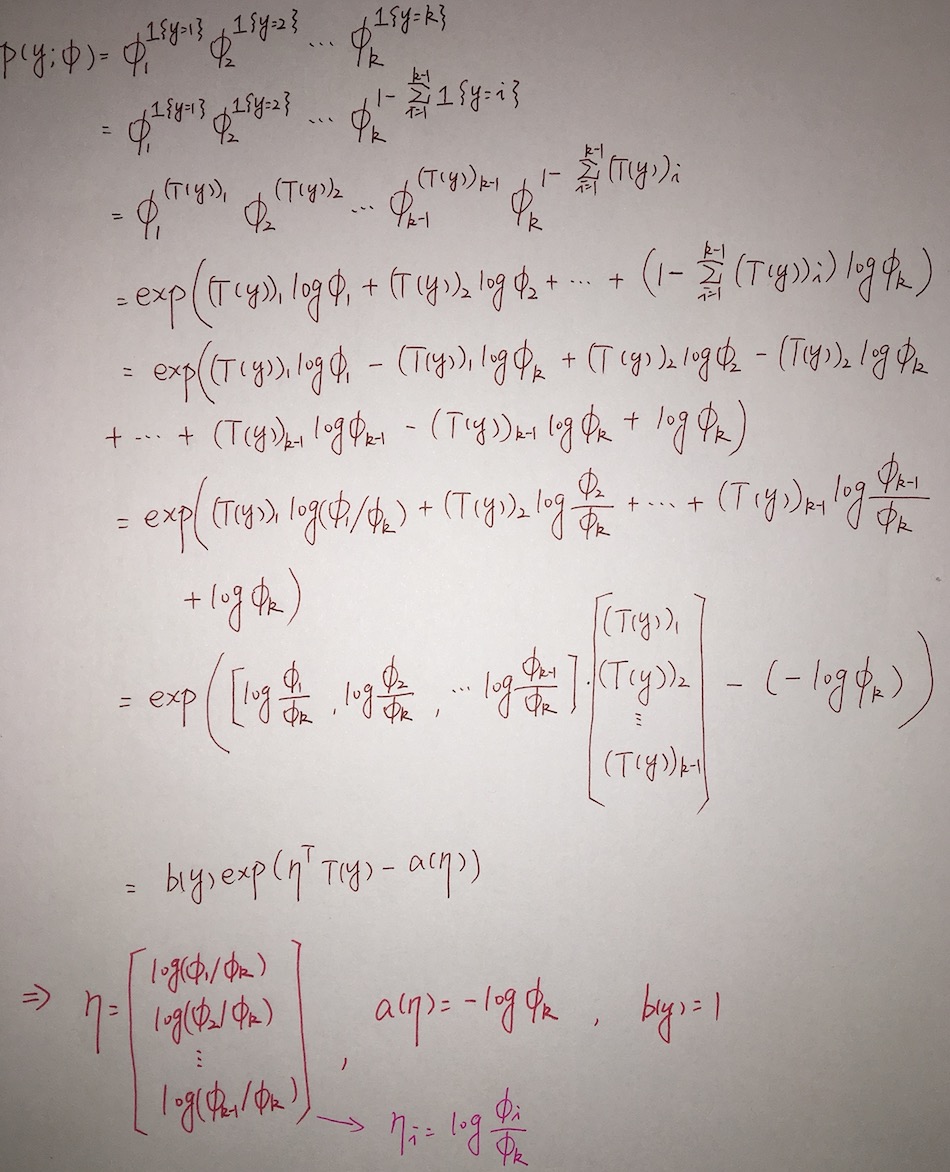 p(y;ϕ) = ϕ₁^{1{y=1}} ϕ₂^{1{y=2}} ⋯ ϕ_k^{1{y=k}}
= ϕ₁^{1{y=1}} ϕ₂^{1{y=2}} ⋯ ϕ_k^{1-∑_{i=1}^{k-1} 1{y=i}}
= ϕ₁^{(T(y))₁} ϕ₂^{(T(y))₂} ⋯ ϕ_{k-1}^{(T(y))_{k-1}} ϕ_k^{1-∑_{i=1}^{k-1} (T(y))_i}
= exp((T(y))₁ log ϕ₁ + (T(y))₂ log ϕ₂ + ⋯ + (1-∑_{i=1}^{k-1} (T(y))_i) log ϕ_k)
= exp((T(y))₁ log ϕ₁ - (T(y))₁ log ϕ_k + (T(y))₂ log ϕ₂ - (T(y))₂ log ϕ_k
+ ⋯ + (T(y))_{k-1} log ϕ_{k-1} - (T(y))_{k-1} log ϕ_k + log ϕ_k)
= exp((T(y))₁ log(ϕ₁/ϕ_k) + (T(y))₂ log \frac{ϕ₂}{ϕ_k} + ⋯ + (T(y))_{k-1} log \frac{ϕ_{k-1}}{ϕ_k}
+ log ϕ_k)
= exp([log \frac{ϕ₁}{ϕ_k}, log \frac{ϕ₂}{ϕ_k}, ⋯ log \frac{ϕ_{k-1}}{ϕ_k}] · [(T(y))₁ (T(y))₂ ⋮ (T(y))_{k-1}] - (-log ϕ_k))
= b(y) exp(η^T T(y) - a(η))
⇒ η = [log(ϕ₁/ϕ_k) log(ϕ₂/ϕ_k) ⋮ log(ϕ_{k-1}/ϕ_k)], a(η) = -log ϕ_k, b(y) = 1
→ η_i = log \frac{ϕ_i}{ϕ_k}